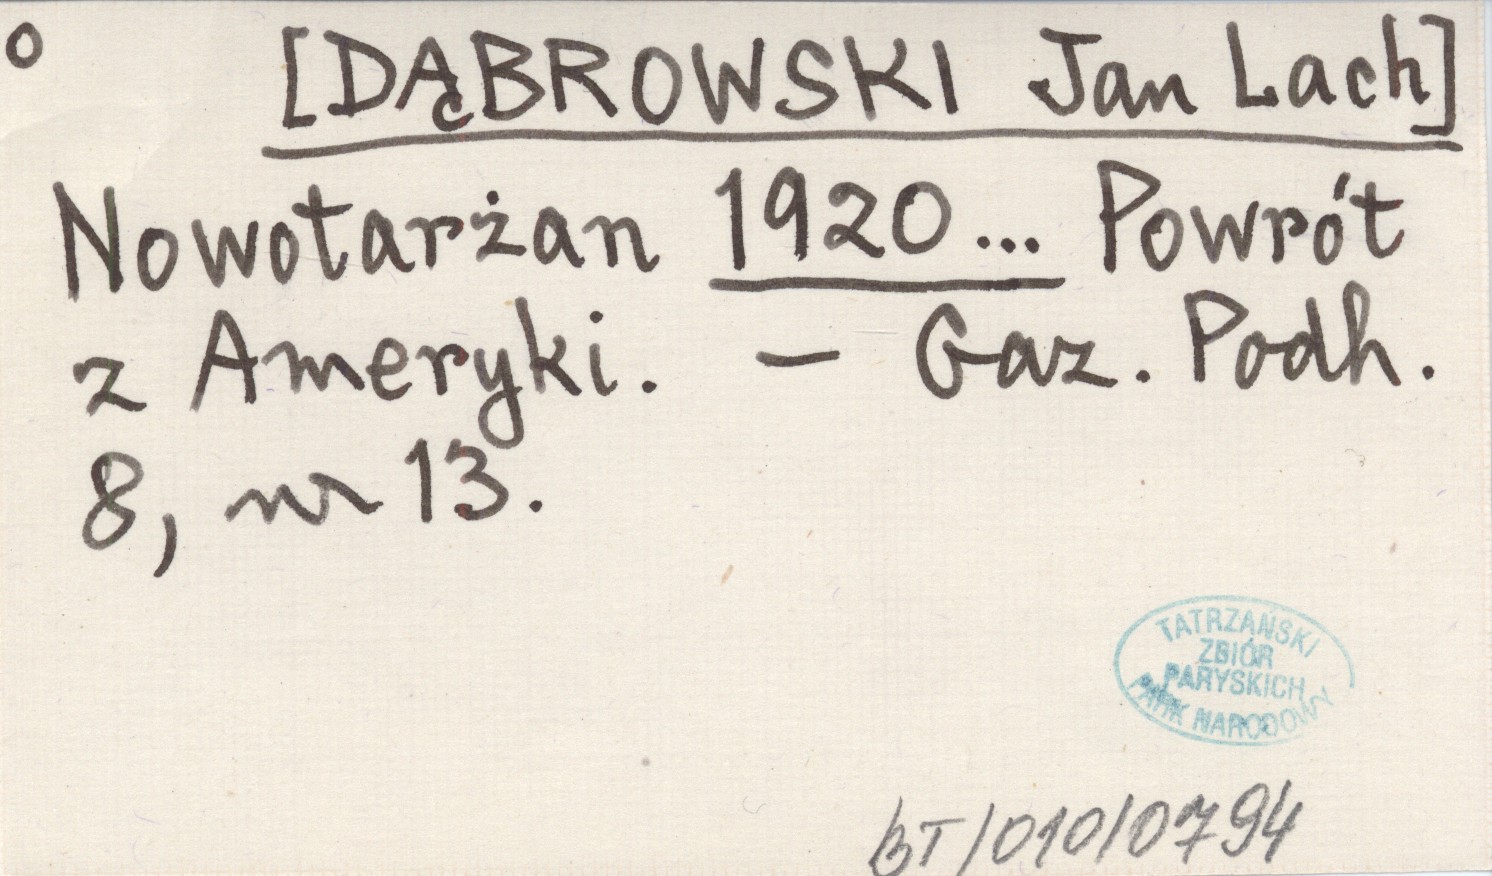 o
[DĄBROWSKI Jan Lach]
Nowotarżan 1920... Powrót
z Ameryki. – Gaz. Podh.
8, nr 13.
TATRZAŃSKI
ZBIÓR
PARYSKICH
PARK NARODOWY
BT/010/0794